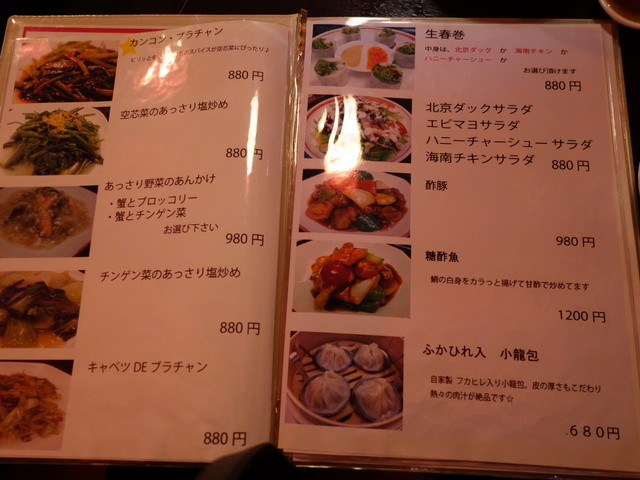 カンコン・ブラチャン
スパイスが空芯菜にぴったり♪
880円
空芯菜のあっさり塩炒め
880円
あっさり野菜のあんかけ
・蟹とブロッコリー
・蟹とチンゲン菜
お選び下さい
980円
チンゲン菜のあっさり塩炒め
880円
キャベツ DE ブラチャン
880円
生春巻
中身は、北京ダック か 海南チキン か
ハニーチャーシュー か
お選び頂けます
880円
北京ダックサラダ
エビマヨサラダ
ハニーチャーシュー サラダ
海南チキンサラダ 880円
酢豚
980円
糖酢魚
鯛の白身をカラっと揚げて甘酢で炒めてます
1200円
ふかひれ入 小龍包
自家製 フカヒレ入り小籠包。皮の厚さもこだわり
熱々の肉汁が絶品です☆
.680円